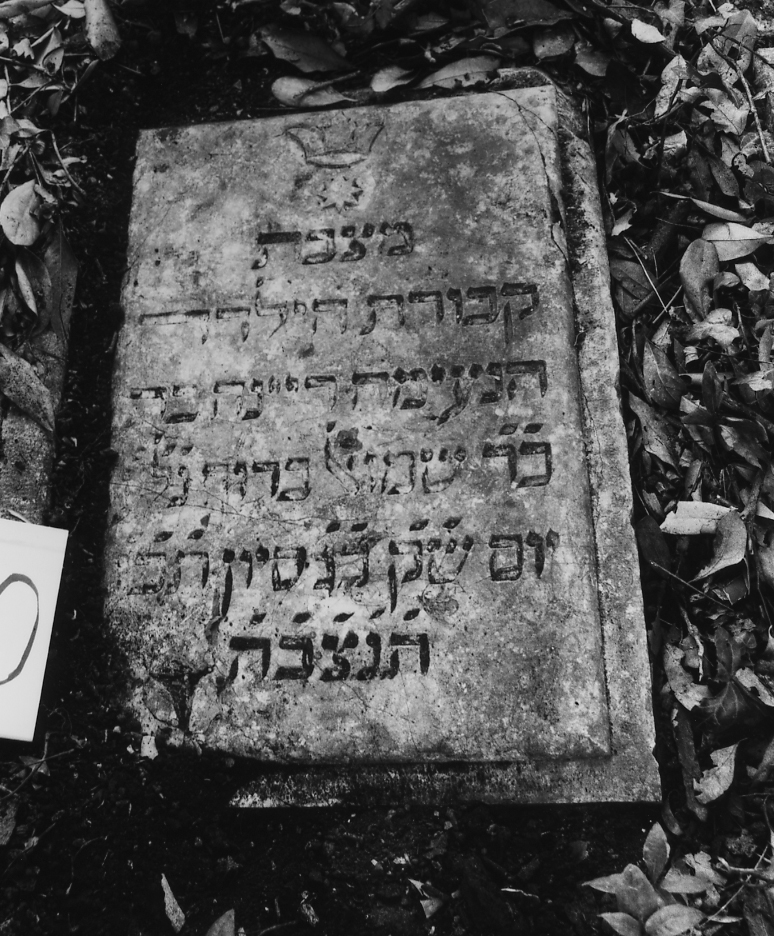 מצבת
קבורת הילדה
הנעימה ריינה בר
כ״ר שמואל ברוך נ״י
יום ש״ק כ״ג סיון
ת׳נ׳צ׳ב׳ה׳